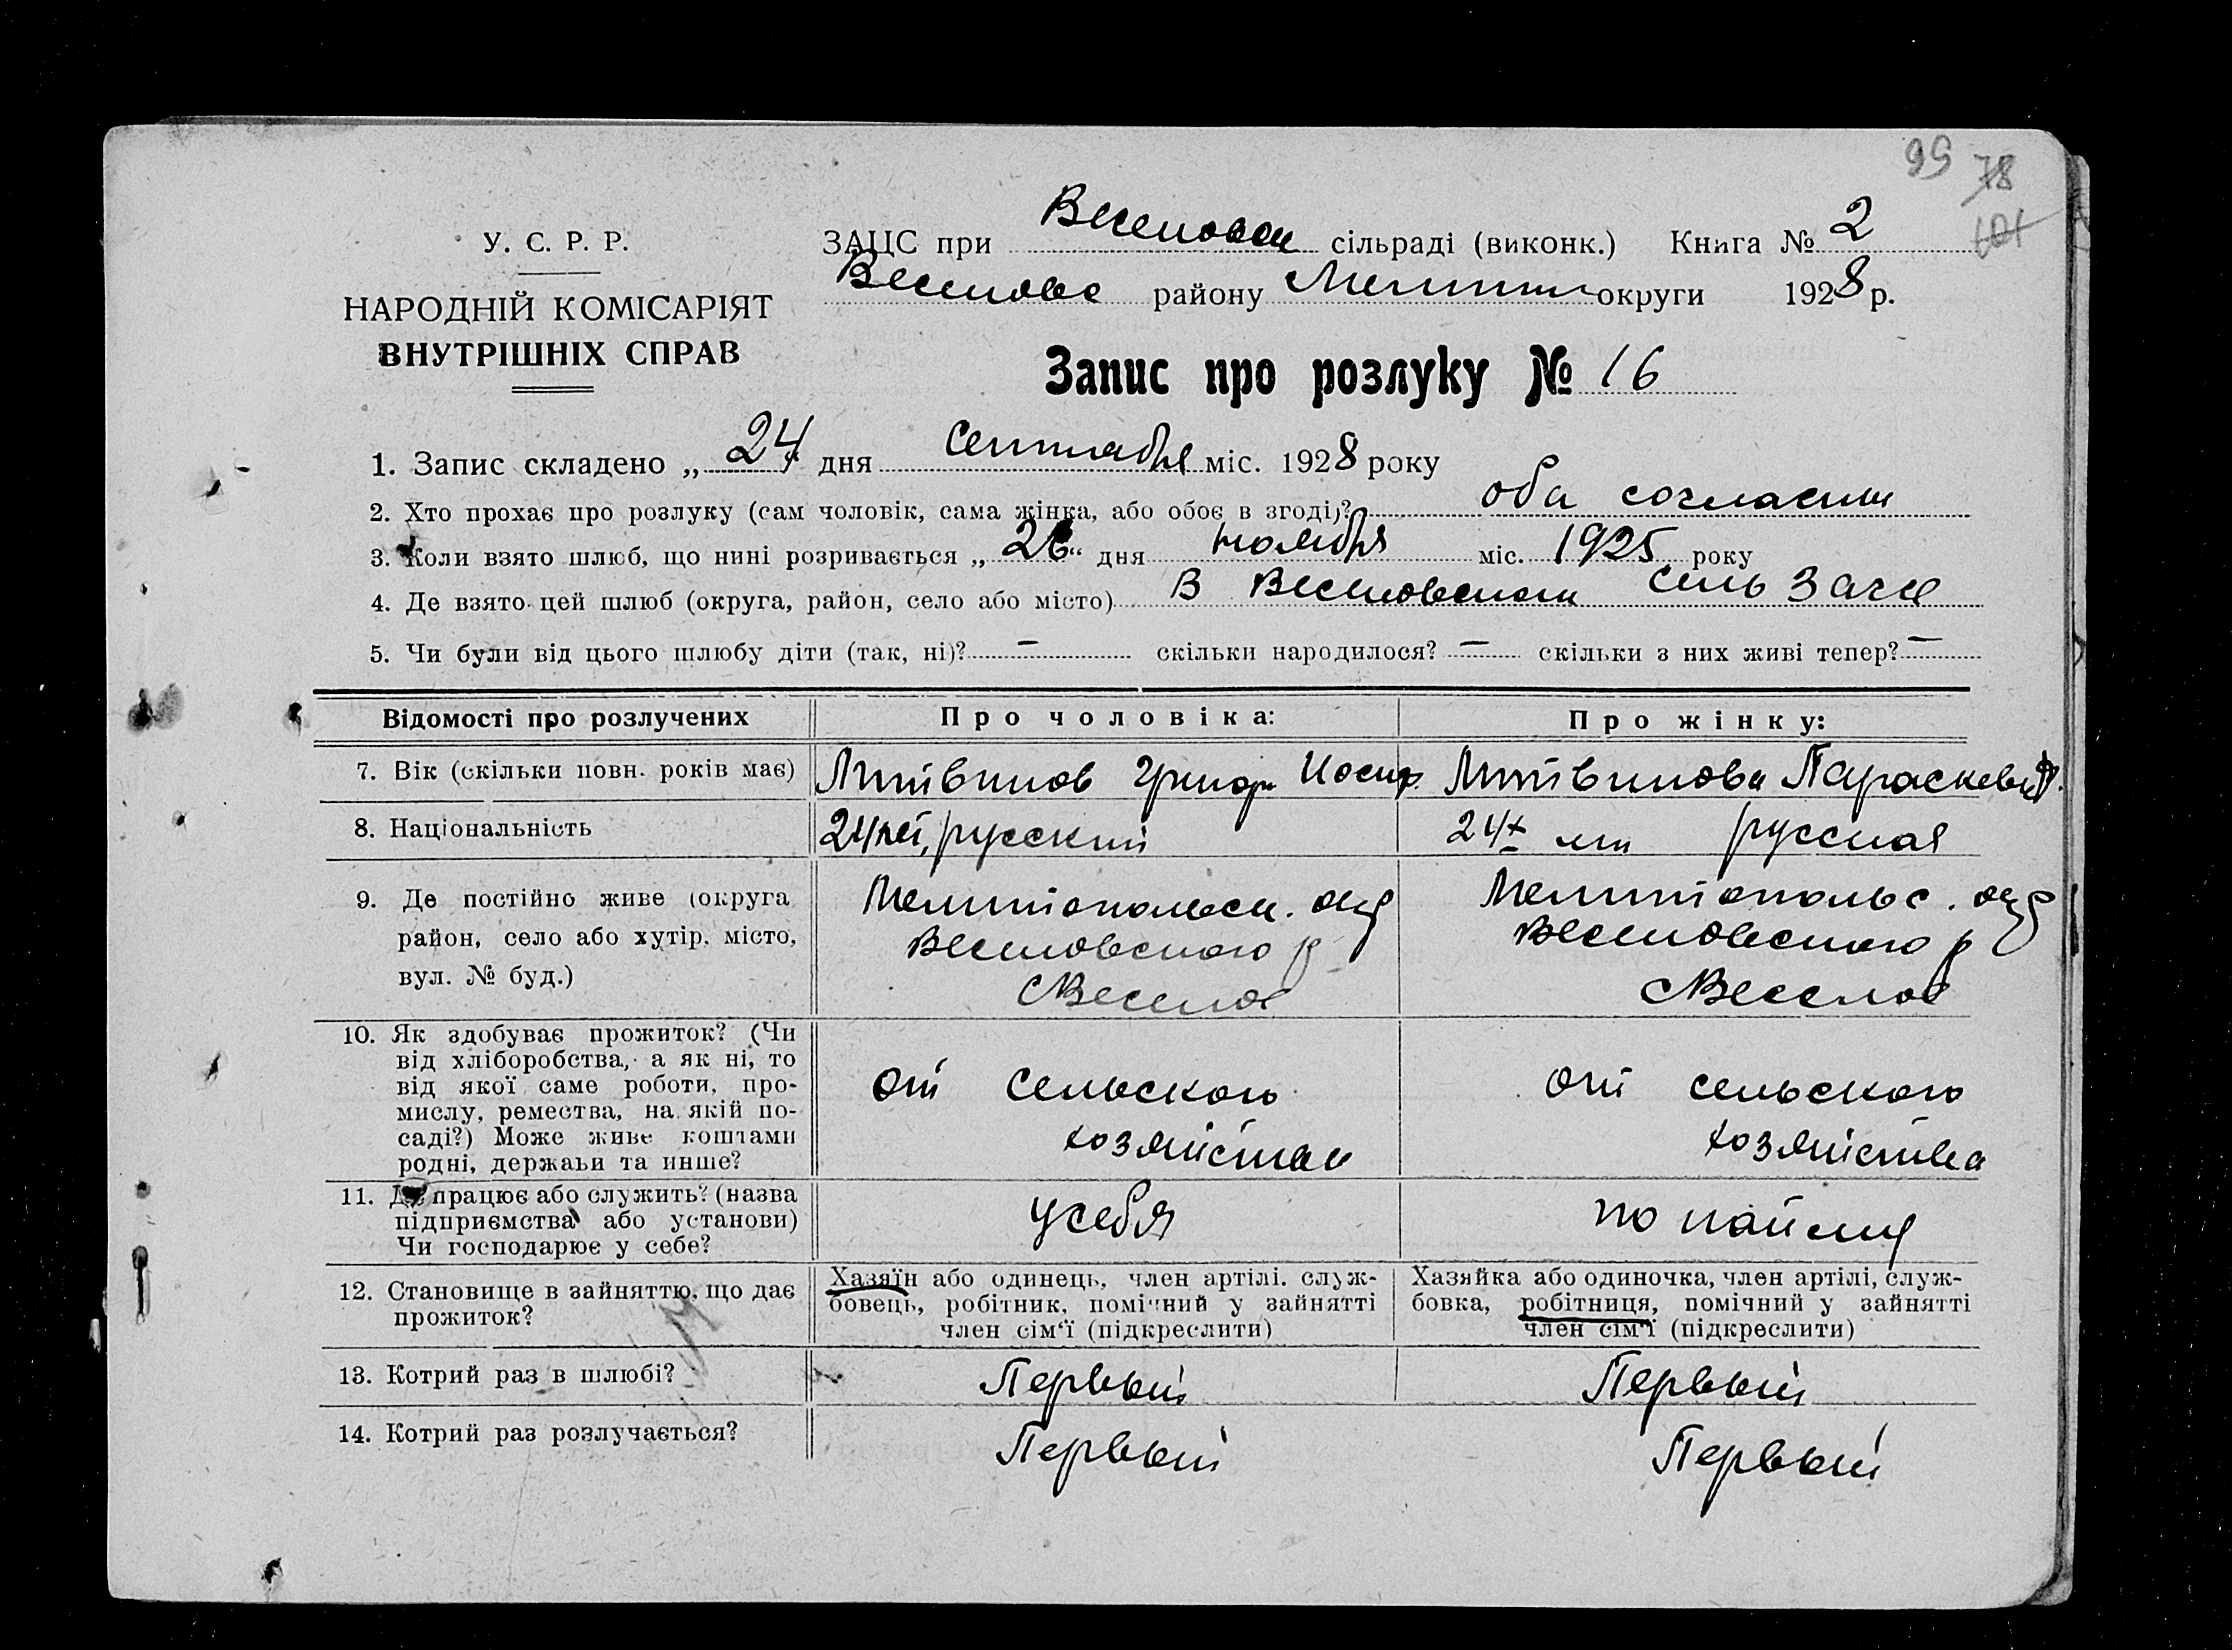 99 78
101
У. С. Р. Р.
НАРОДНІЙ КОМІСАРІЯТ
ВНУТРІШНІХ СПРАВ
ЗАЦС при Веселовск сільраді (виконк.) Книга № 2
Веселовс району Мелитоп округи 1928 р.
Запис про розлуку № 16
1. Запис складено „ 24 “ дня Сентлабря міс. 1928 року
2. Хто прохає про розлуку (сам чоловік, сама жінка, або обоє в згоді)? оба согласни
3. Коли взято шлюб, що нині розривається „ 26 “ дня ноября міс. 1925 року
4. Де взято цей шлюб (округа, район, село або місто) В Веселовском Сель Загсе
5. Чи були від цього шлюбу діти (так, ні)? — скільки народилося? — скільки з них живі тепер? —
Відомості про розлучених Про чоловіка: Про жінку:
7. Вік (скільки повн. років має) Литвинов Григори Иосиф. Литвинова Параскева
8. Національність 24 лет, русский 24х лет русская
9. Де постійно живе (округа район, село або хутір, місто, вул. № буд.)
Мелитопольск. окр
Веселовского р
с Веселое
Мелитопольс. окр
Веселовского р
с Веселое
10. Як здобуває прожиток? (Чи
від хліборобства, а як ні, то
від якої саме роботи, про-
мислу, ремества, на якій по-
саді?) Може живе коштами
родні, держави та инше?
от Сельского
хозяйства
от сельского
хозяйства
11. Де працює або служить? (назва
підприємства або установи)
Чи господарює у себе?
у себя
по найму
12. Становище в зайняттю, що дає
прожиток?
Хазяїн або одинець, член артілі, служ-
бовець, робітник, помічний у зайнятті
член сім‘ї (підкреслити)
Хазяйка або одиночка, член артілі, служ-
бовка, робітниця, помічний у зайнятті
член сім‘ї (підкреслити)
13. Котрий раз в шлюбі? Первый Первый
14. Котрий раз розлучається? Первый Первый